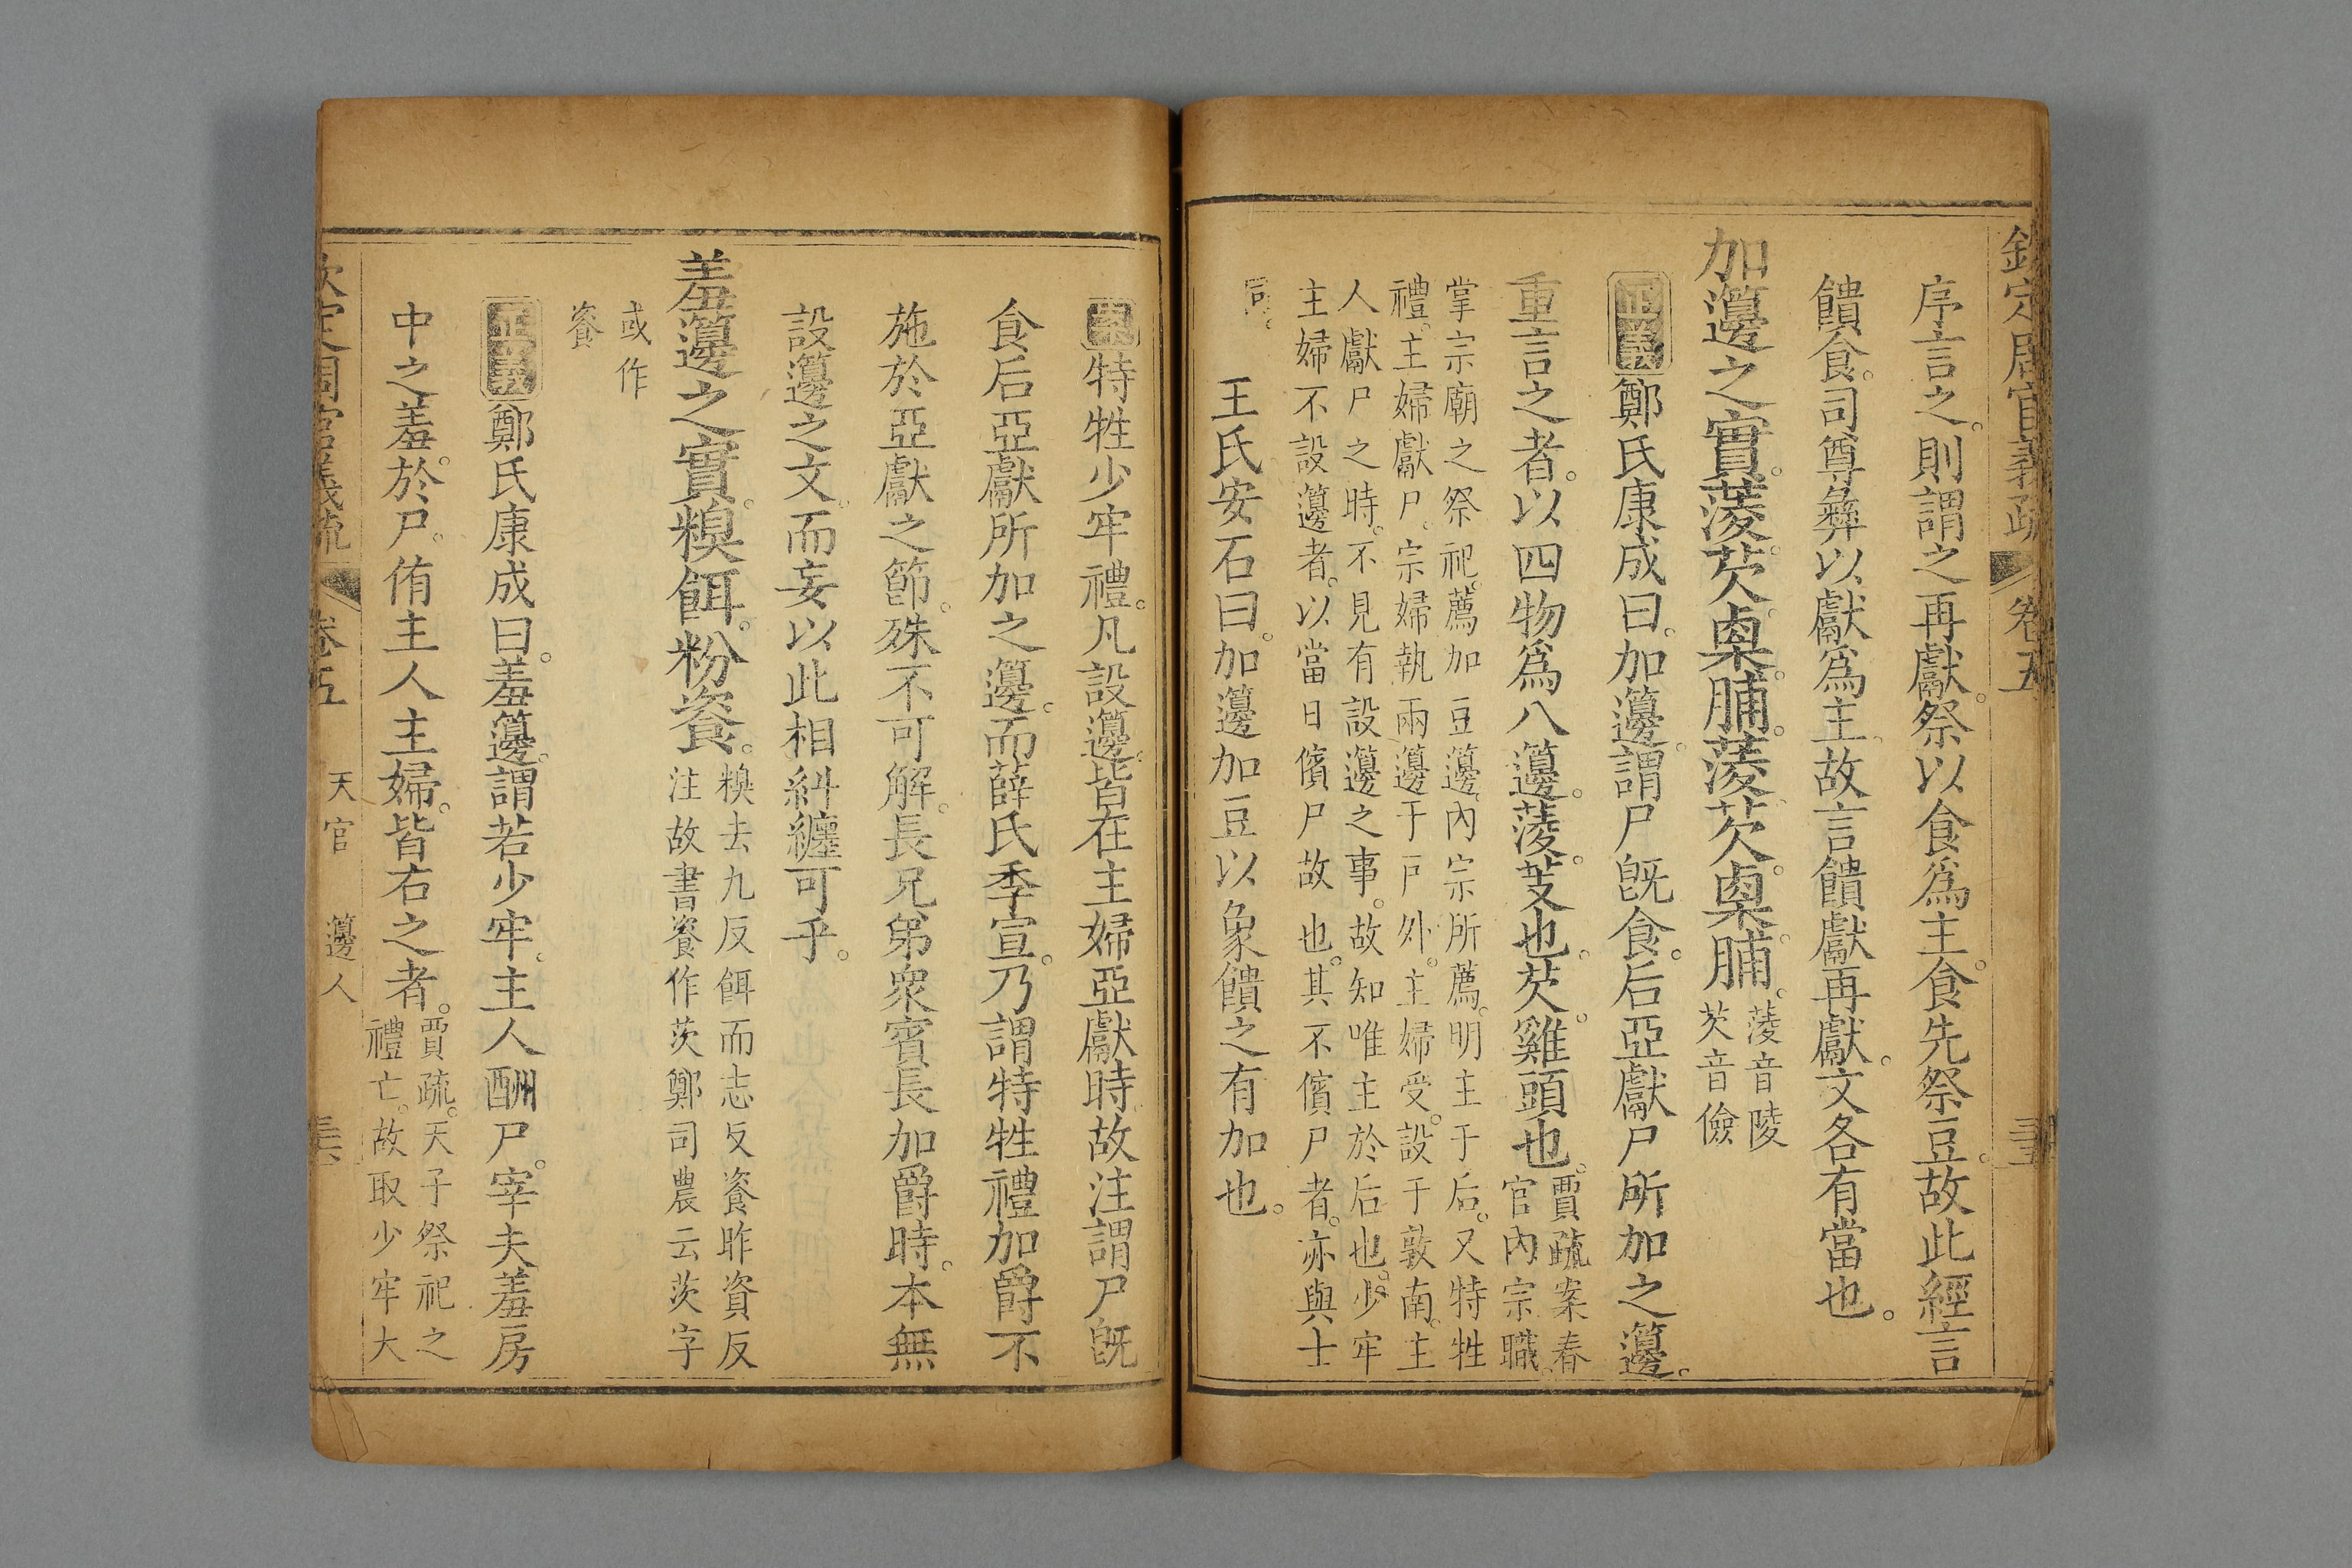 欽定周官義疏 卷五
序言之。則謂之再獻。祭以食爲主。食先祭豆。故此經言
饋食。司尊彝以獻爲主。故言饋獻再獻。文各有當也。
加籩之實。蔆芡。㮚脯。蔆芡。㮚脯。
蔆音陵
芡音儉
正義鄭氏康成曰。加籩。謂尸既食。后亞獻尸所加之籩。
重言之者。以四物爲八籩。蔆。芰也。芡。雞頭也。
賈疏案春
官內宗職。
掌宗廟之祭祀。薦加豆籩。內宗所薦。明主于后。又特牲
禮。主婦獻尸。宗婦執兩籩于戸外。主婦受。設于敦南。主
人獻尸之時。不見有設籩之事。故知唯主於后也。少牢
主婦不設籩者。以當日儐尸故也。其不儐尸者。亦與士
同。
王氏安石曰。加籩加豆以象饋之有加也。
案特牲少牢禮。凡設籩。皆在主婦亞獻時故注謂尸既
食后亞獻所加之籩。而薛氏季宣。乃謂特牲禮加爵不
施於亞獻之節。殊不可解。長兄弟衆賓長加爵時。本無
設籩之文。而妄以此相糾纏可乎。
羞籩之實。糗餌。粉餈。
糗去九反餌而志反餈昨資反
注故書餈作茨鄭司農云茨字
或作
餈
正義鄭氏康成曰。羞籩。謂若少牢。主人酬尸。宰夫羞房
中之羞。於尸。侑主人主婦。皆右之者。
賈疏。天子祭祀之
禮亡。故取少牢大
欽定周官義疏 卷五 天官 籩人